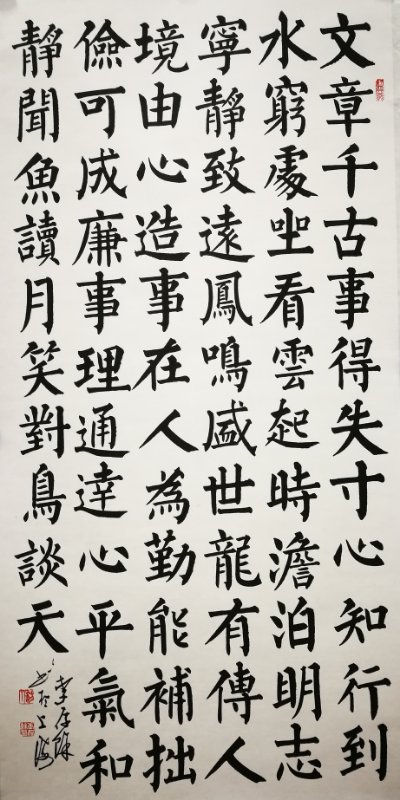 文章千古事得失寸心知行到
水窮處坐看雲起時澹泊明志
寧靜致遠鳳鳴盛世龍有傳人
境由心造事在人為勤能補拙
儉可成廉事理通達心平氣和
靜聞魚讀月笑對鳥談天
李存
书于上海